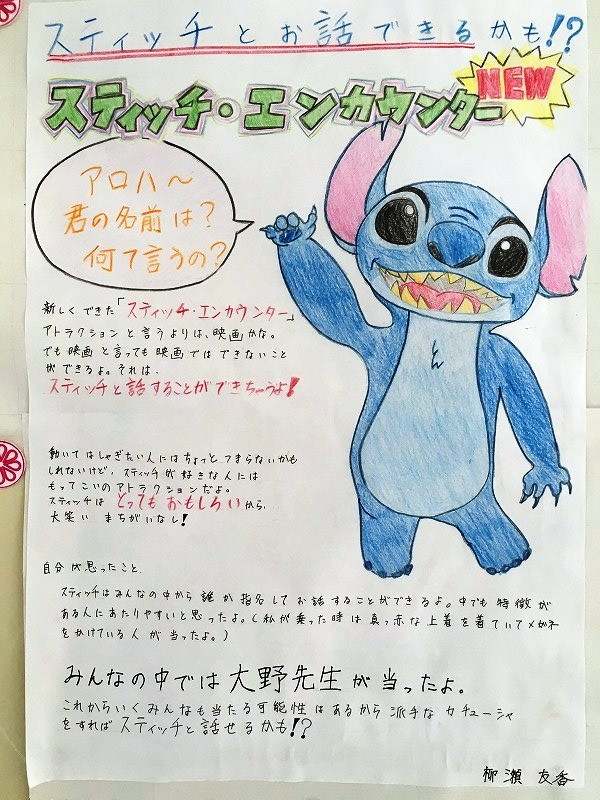 スティッチとお話できるかも!?
スティッチ・エンカウンター
NEW
アロハ〜
君の名前は?
何て言うの?
新しくできた「スティッチ・エンカウンター」
アトラクションと言うよりは、映画かな。
でも映画と言っても映画ではできないこと
ができるよ。それは、
スティッチと話することができちゃうよ!
動いてはしゃぎたい人にはちょっとつまらないかも
しれないけど、スティッチが好きな人には
もってこいのアトラクションだよ。
スティッチはとってもおもしろいから、
大笑いまちがいなし!
自分が思ったこと、
スティッチはみんなの中から誰か指名してお話することができるよ。中でも特徴が
ある人にあたりやすいと思ったよ。(私が乗った時は真っ赤な上着を着ていてメガネ
をかけている人が当ったよ。)
みんなの中では大野先生が当ったよ。
これからいくみんなも当たる可能性はあるから派手なカチューシャ
をすればスティッチと話せるかも!?
柳瀬 友香